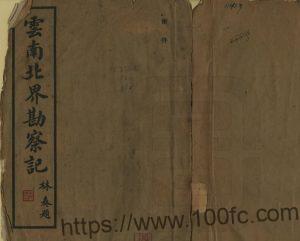 雲南北界勘察記
林森題
https://www.100fc.com